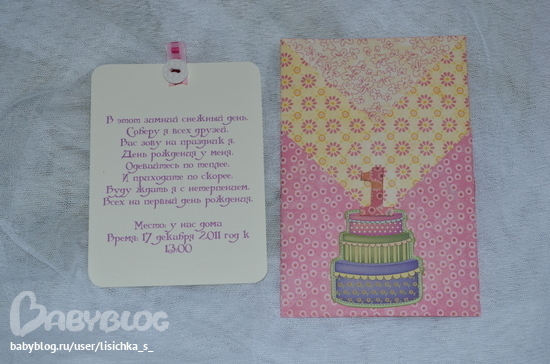 В этот зимний снежный день.
Соберу я всех друзей.
Вас зову на праздник я.
День рождения у меня.
Одевайтесь по теплее.
И приходите по скорее.
Буду ждать я с нетерпением.
Всех на первый день рождения.
Место: у нас дома
Время: 17 декабря 2011 год к
13:00
1
BABYBLOG
babyblog.ru/user/lisichka_s_